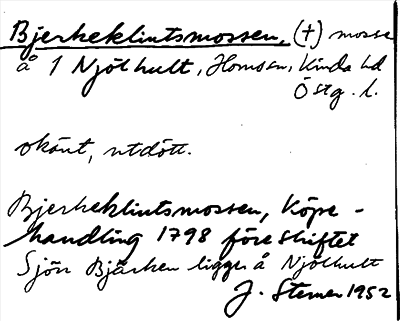 Bjerkeklintsmossen, (+) mosse
å 1 Njölhult, Homsen, Kinda hd
Östg. l.
okänt, utdött.
Bjerkeklintsmossen, Köpe-
handling 1798 före skiftet
Sjön Bjärken ligger å Njölhult
J. Sterner 1952